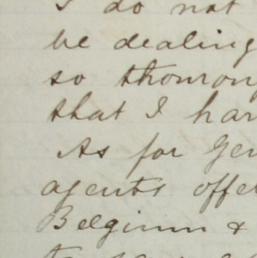 I do not
be dealing
so thorou
that I ha
As for Ger
agents offe
Belgium &